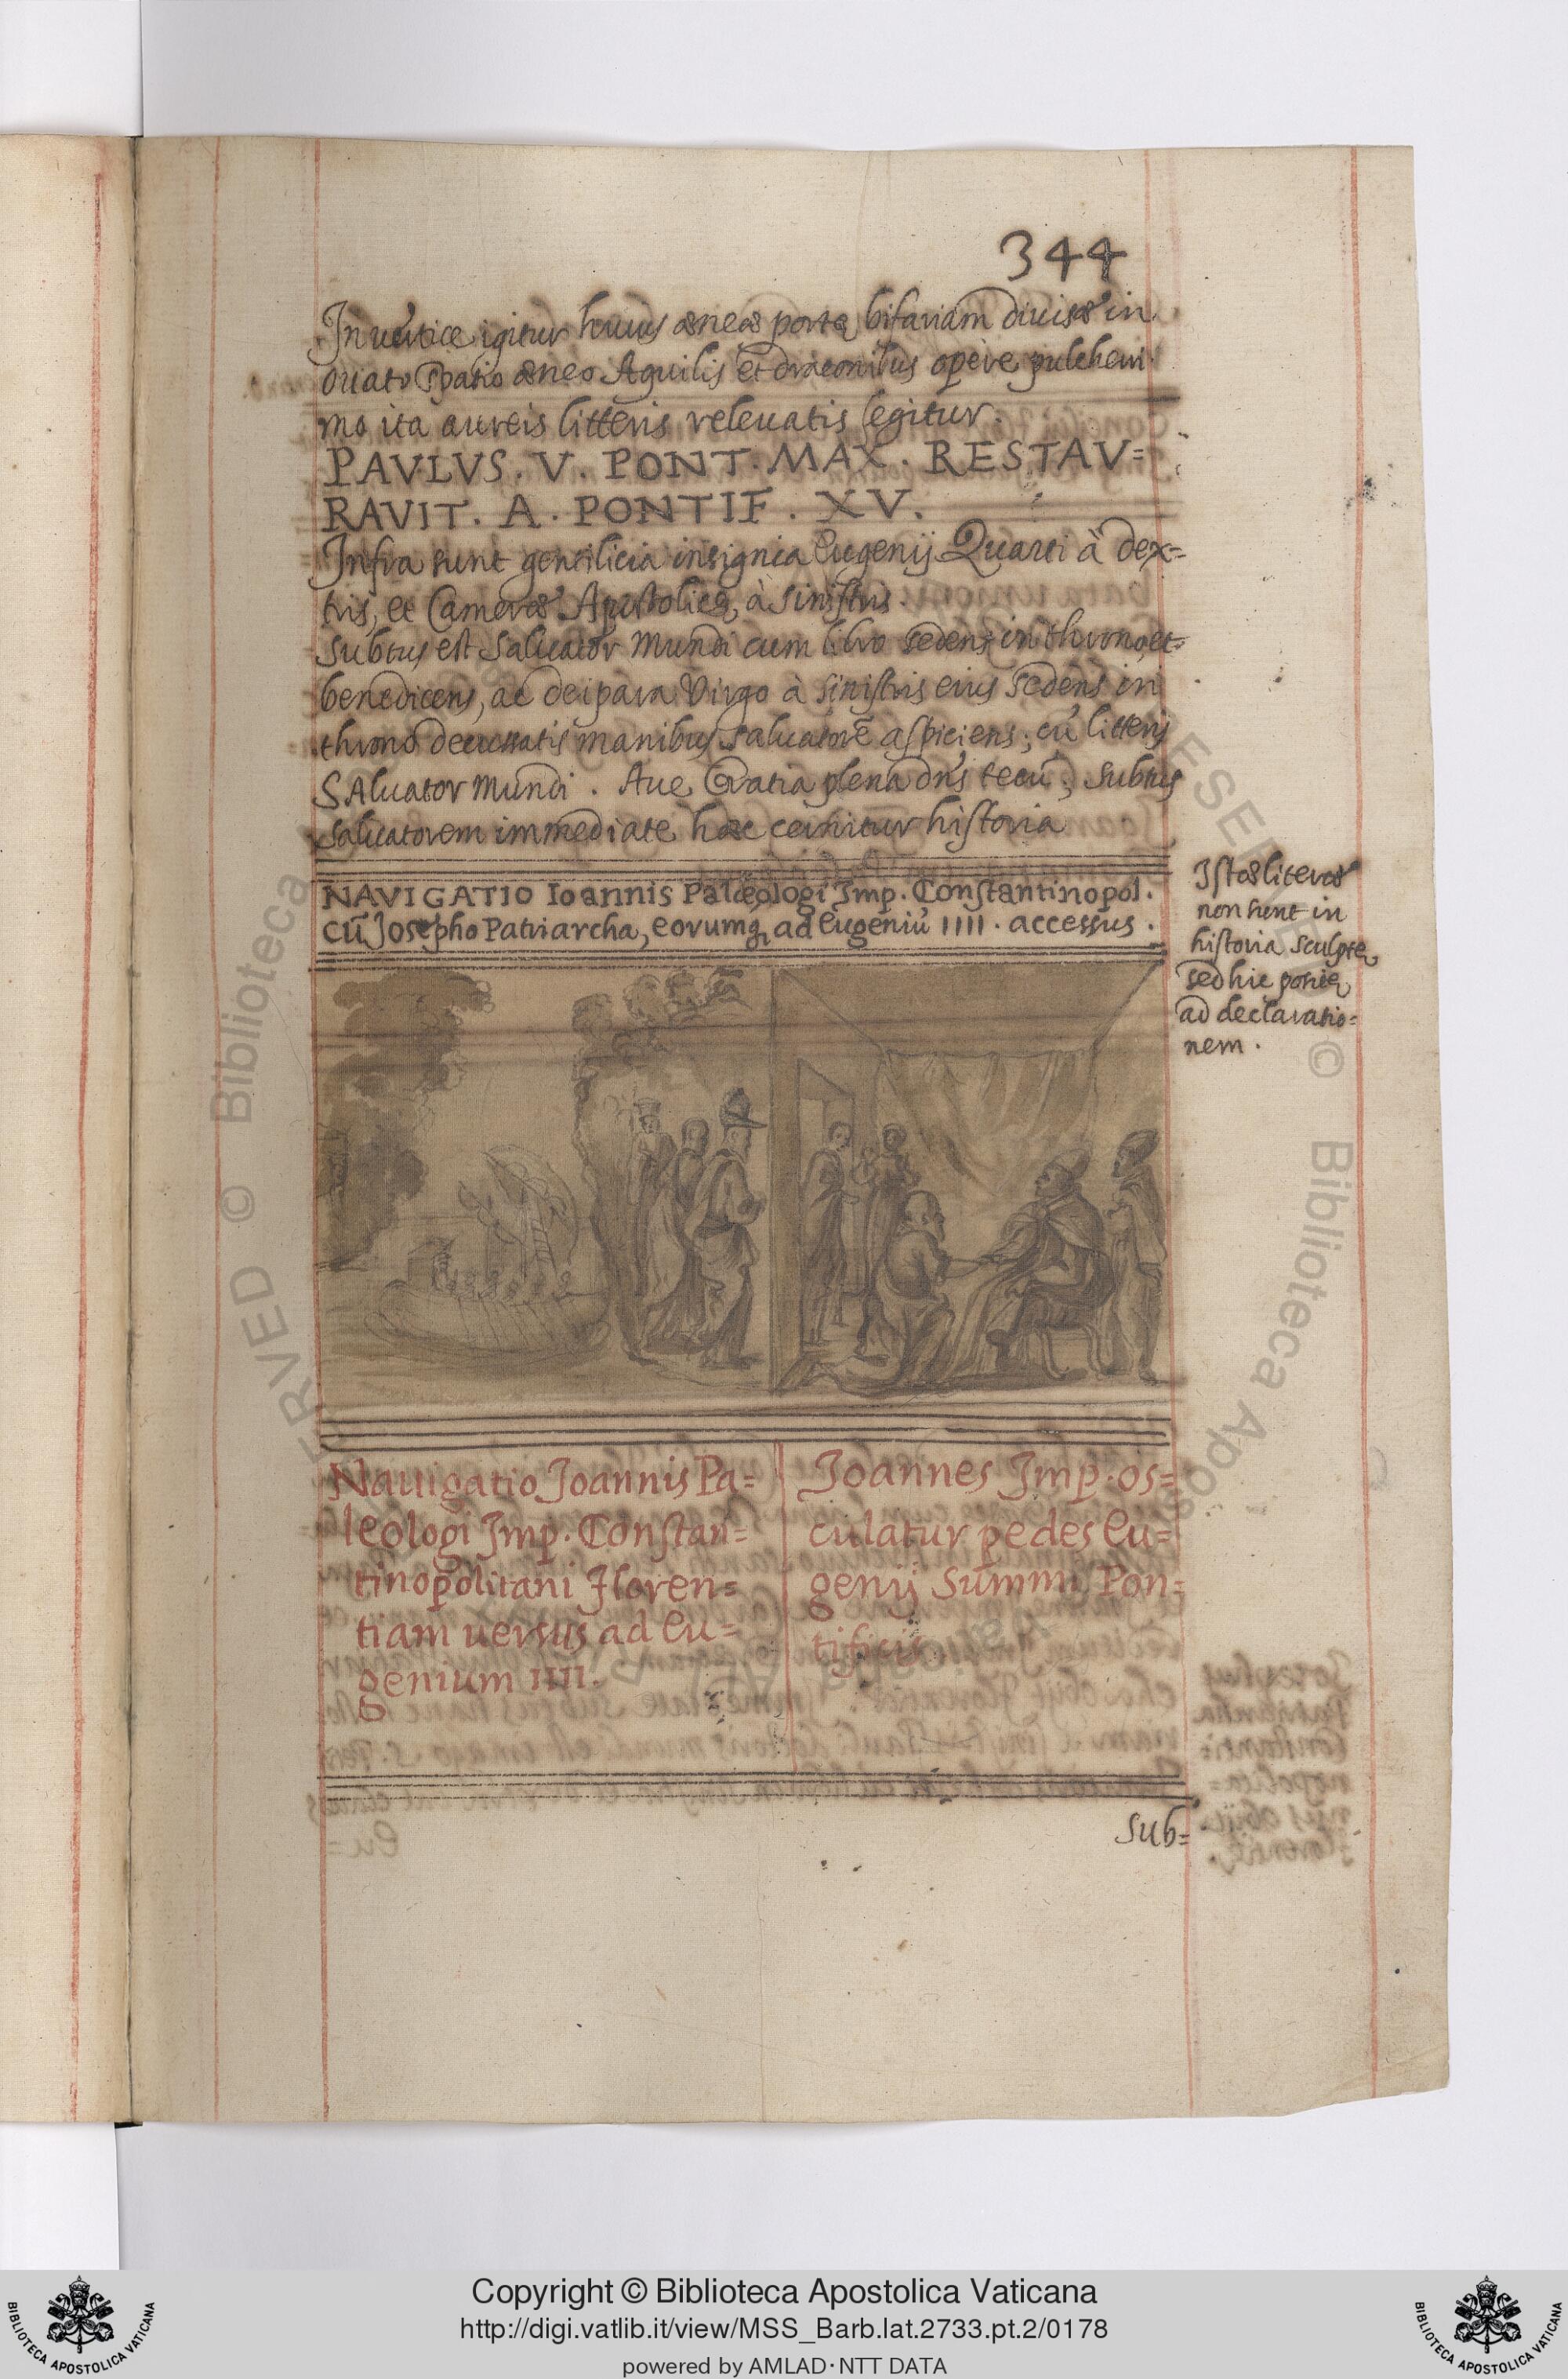 344
In uertice igitur huius æneæ portę bifariam diuisæ in
ouato spatio æneo Aquilis et draconibus opere pulcherri
mo ita aureis litteris releuatis legitur.
PAVLVS. V. PONT. MAX. RESTAV=
RAVIT. A. PONTIF. XV.
Infra sunt gentilicia insignia Eugenij Quarti à dex=
tris, et Cameræ Apostolicę à sinistris.
Subtus est Saluator Mundi cum libro sedens in throno, et
benedicens, ac deipara Virgo à sinistris eius sedens in
throno decussatis manibus Saluatorē aspiciens; cū litteris
SAluator Mundi. Aue Gratia plena dn̄s tecū; subtus
saluatorem immediate hæc cernitur historia
NAVIGATIO Ioannis Palæologi Imp. Constantinopol.
cū Josepho Patriarcha, eorumq, ad Eugeniū IIII. accessus.
Istæ literæ
non sunt in
historia sculptę
sed hic positę
ad declaratio=
nem.
Nauigatio Joannis Pa=
leologi Imp. Constan=
tinopolitani Floren=
tiam uersus ad Eu=
genium IIII.
Joannes Imp. os=
culatur pedes Eu=
genij Summi Pon=
tificis.
Sub=
Copyright © Biblioteca Apostolica Vaticana
http://digi.vatlib.it/view/MSS_Barb.lat.2733.pt.2/0178
powered by AMLAD·NTT DATA
BIBLIOTECA APOSTOLICA VATICANA
BIBLIOTECA APOSTOLICA VATICANA